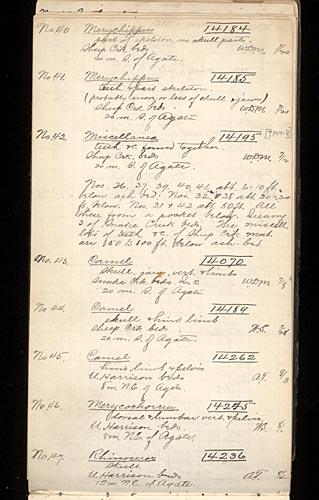 No 40 Merychippus 14184
part of skeleton, no skull parts.
Sheep Crk. beds W.D.M.
20 m. S. of Agate.
No. 41. Merychippus 14185
teeth & part skeleton
(probably more or less of skull & jaws)
Sheep Crk. beds W.D.M.
20 m. S. of Agate
No. 42. Miscellanea 14195
teeth &c found together
Sheep Crk. beds W.D.M.
20 m. S. of Agate.
Nos. 36, 37, 39, 40, 41, abt. 6-10 ft.
below ash bed. Nos. 32 & 38 abt 20-30
ft. below. Nos. 31 & 42 abt 50 ft. All
these from a pocket below
3 of Snake Creek beds. The miscell.
lots of teeth &c. of Sheep Crk. mat.
are 50 to 100 ft. below ash bed
No. 43. Camel 14070
Skull, jaws, vert. & limbs
Snake Crk. beds, 2 W.D.M.
20 m. S. of Agate
No 44. Camel 14189
skull & hind limb
Sheep Crk. beds W.S.
20 m. S. of Agate.
No 45. Camel 14262
hind limb & pelvis
U. Harrison beds A.T.
8 m N.E. of Agate
No. 46. Merycochoerus 14245
dorsal & lumbar vert. & pelvis.
U. Harrison beds. W.S.
8 m N.E. of Agate.
No. 47. Rhinoceros 14236
Skull
U. Harrison beds A.T.
12 m N.E. of Agate.